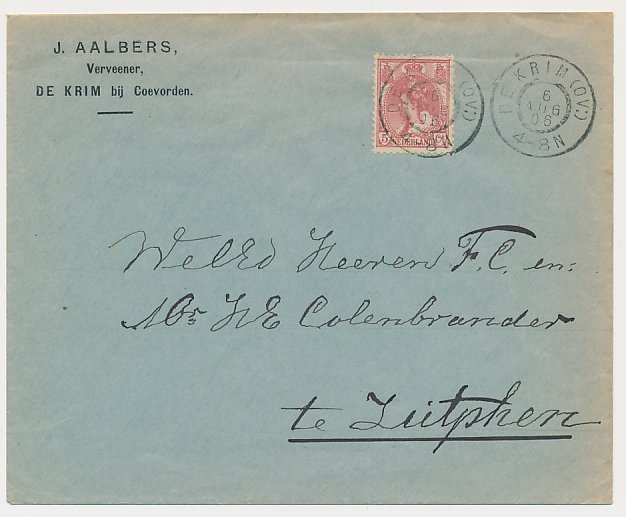 J. AALBERS,
Verveener,
DE KRIM bij Coevorden.
5 NEDERLAND Ct
DE KRIM (OV)
6
AUG
06
4-8N
WelEd Heeren F. C. en:
Mr HE Colenbrander
te Zutphen